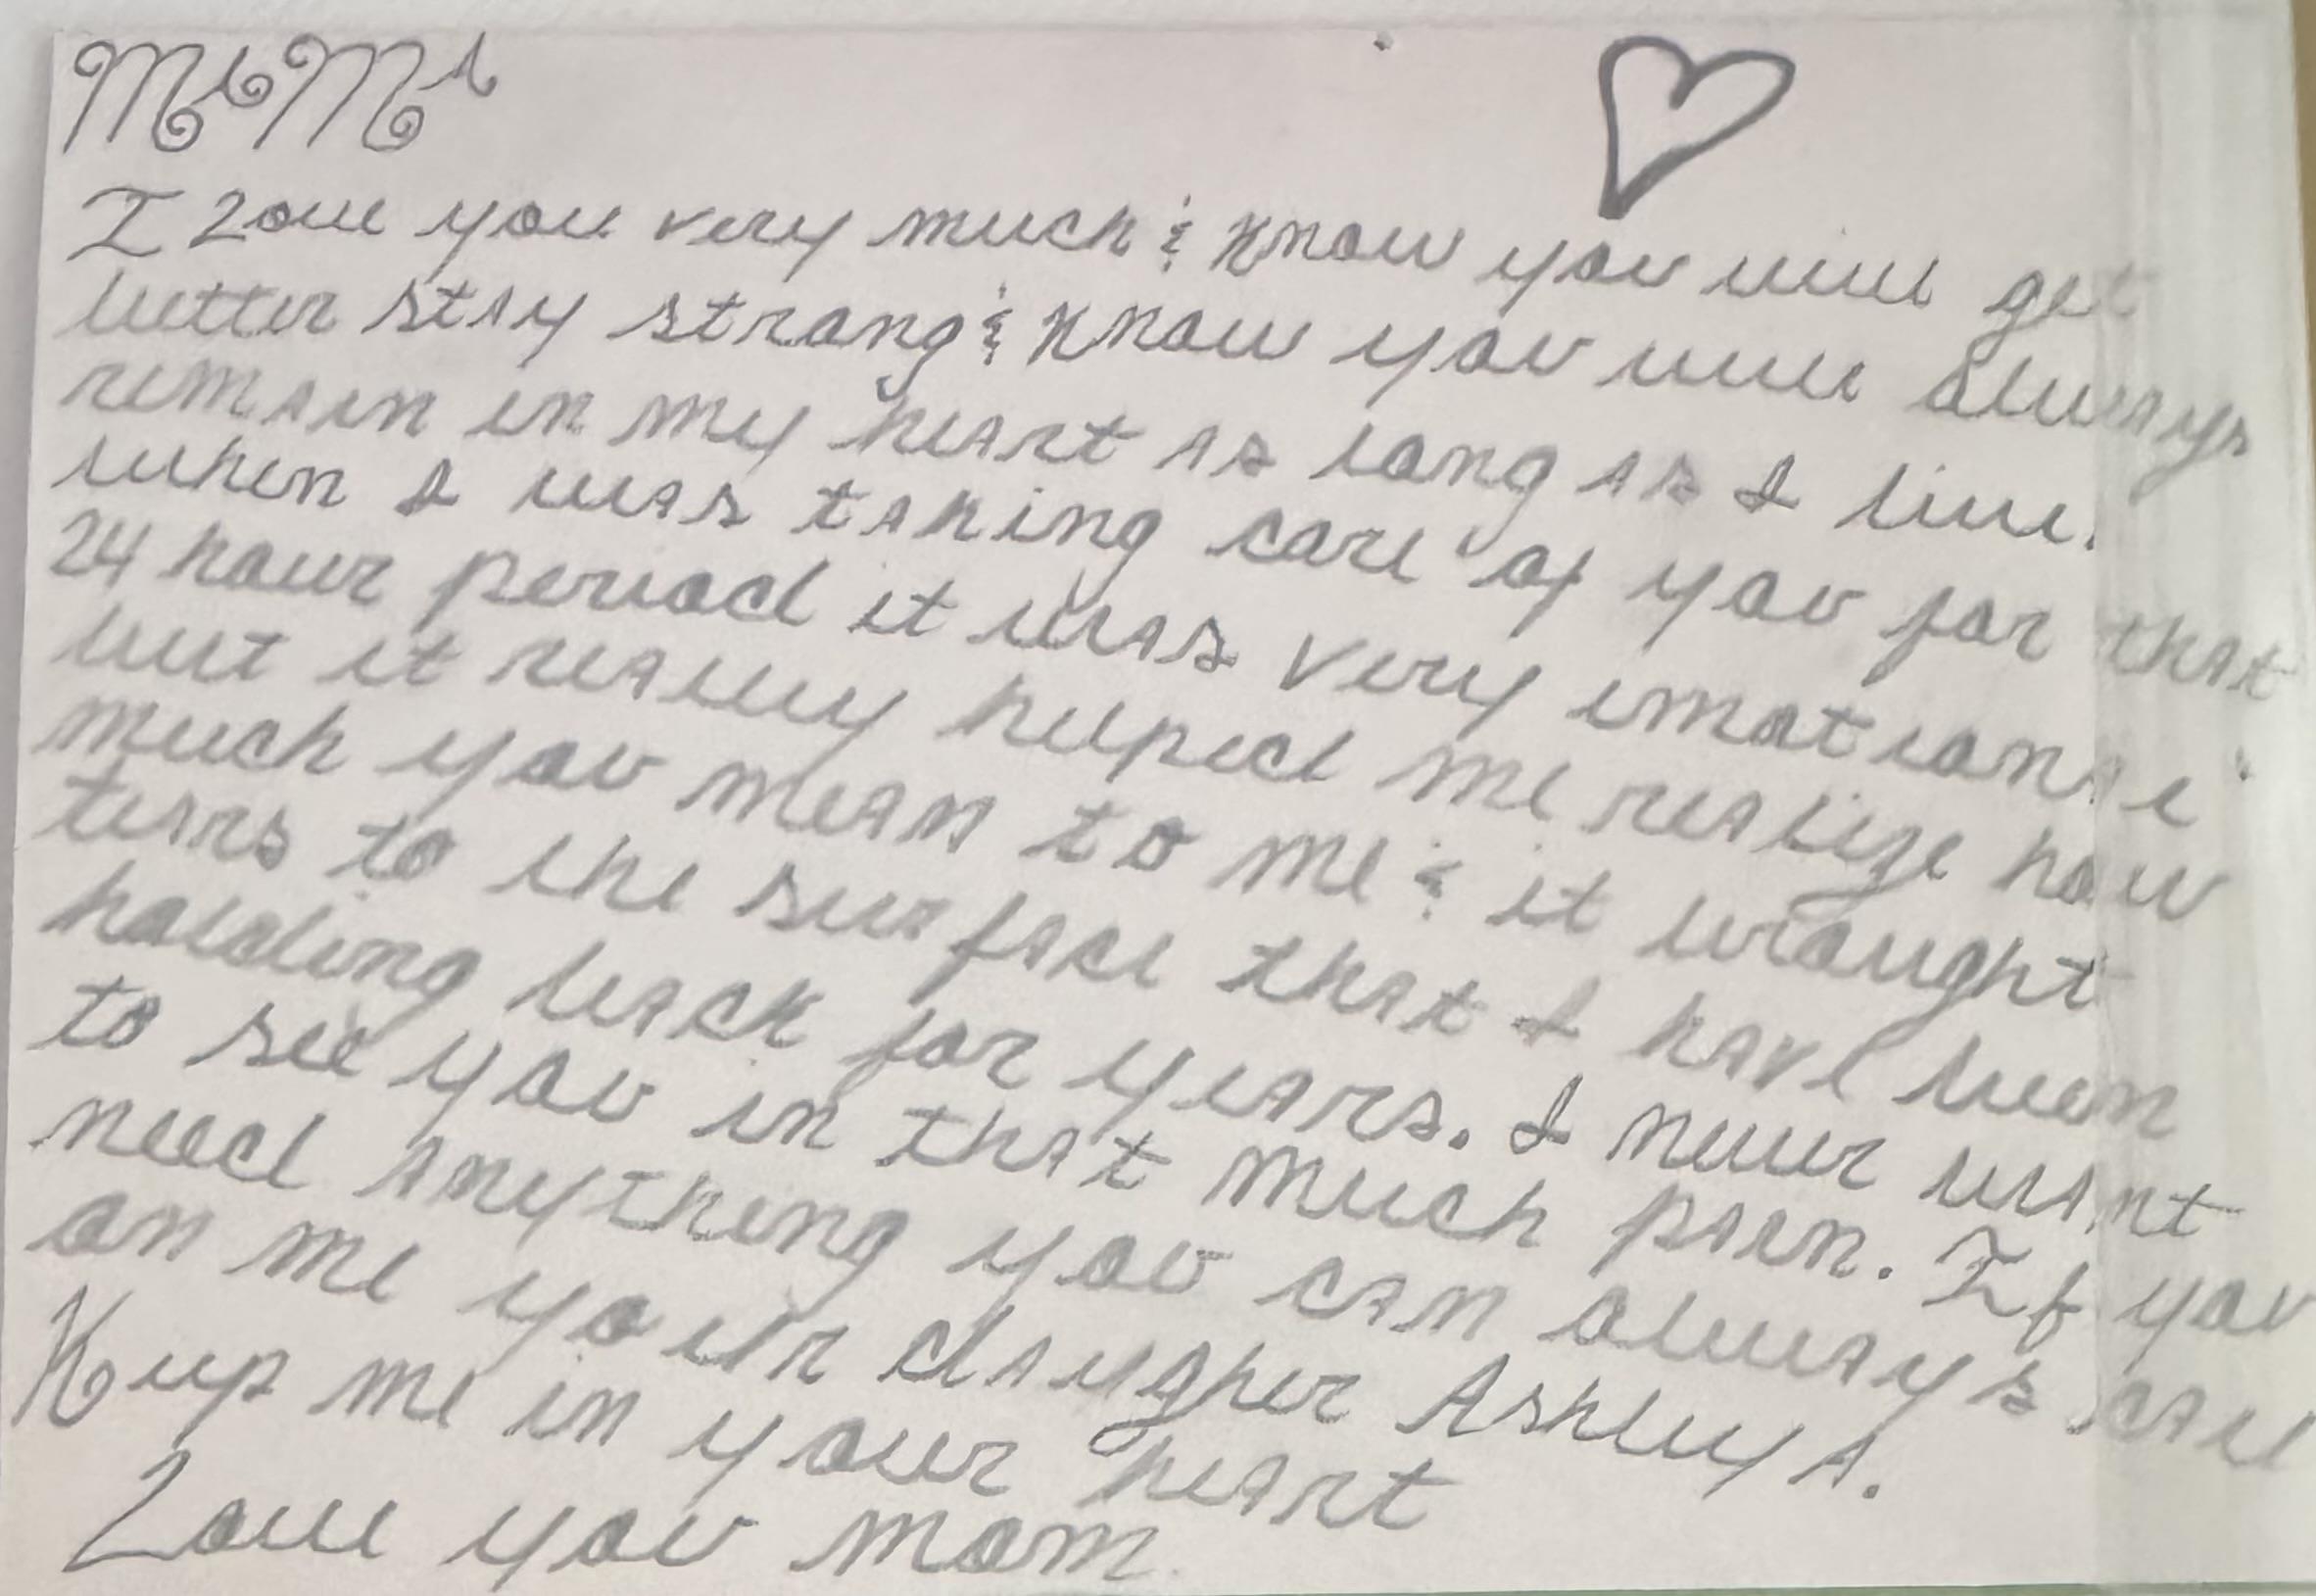 MiMi
I Love you very much & Know you will get
better stay strong & Know you will always
remain in my heart as long as I live.
when I was taking care of you for that
24 hour period it was very emotional
but it really helped me realize how
much you mean to me & it brought
tears to the surface that I have been
holding back for years. I never want
to see you in that much pain. If you
need anything you can always call
on me your daugher Ashley A.
Keep me in your heart
Love you mom